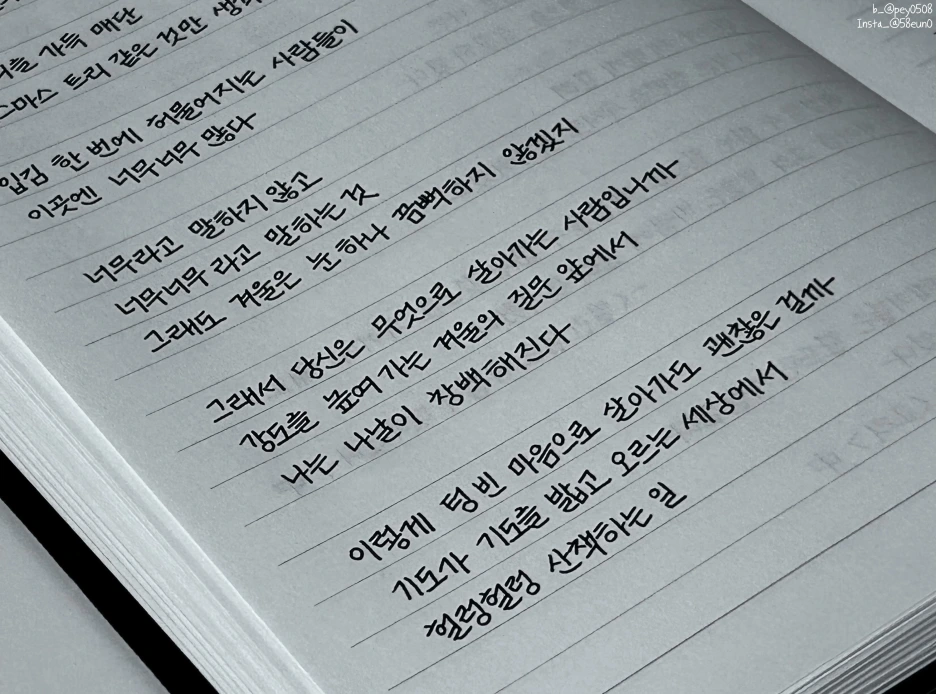 b_@pey0508
Insta_@58eun0
가득 매단
트리 같은 것만
입김 한 번에 허물어지는 사람들이
이곳엔 너무너무 많다
너무라고 말하지 않고
너무너무 라고 말하는 것
그래도 겨울은 눈 하나 끔뻑하지 않겠지
그래서 당신은 무엇으로 살아가는 사람입니까
강도를 높여 가는 겨울의 질문 앞에서
나는 나날이 창백해진다
이렇게 텅 빈 마음으로 살아가도 괜찮은 걸까
기도가 기도를 밟고 오르는 세상에서
헐렁헐렁 산책하는 일